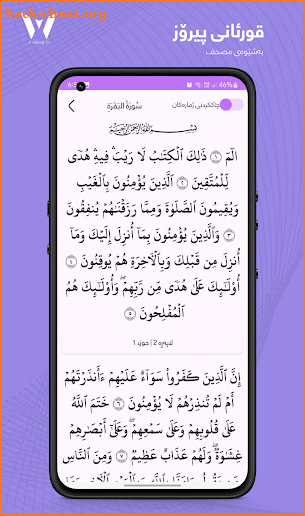 قورئانی پیرۆز
بەشێوەی مصحف
46%
سُورَةُ البَقَرَةِ
چاککردنی ژمارەکان
بِسۡمِ ٱللَّهِ ٱلرَّحۡمَٰنِ ٱلرَّحِيمِ
الٓمٓ ١ ذَٰلِكَ ٱلۡكِتَٰبُ لَا رَيۡبَۛ فِيهِۛ هُدٗى
لِّلۡمُتَّقِينَ ٢ ٱلَّذِينَ يُؤۡمِنُونَ بِٱلۡغَيۡبِ
وَيُقِيمُونَ ٱلصَّلَوٰةَ وَمِمَّا رَزَقۡنَٰهُمۡ يُنفِقُونَ
٣ وَٱلَّذِينَ يُؤۡمِنُونَ بِمَآ أُنزِلَ إِلَيۡكَ وَمَآ
أُنزِلَ مِن قَبۡلِكَ وَبِٱلۡأٓخِرَةِ هُمۡ يُوقِنُونَ ٤
أُوْلَٰٓئِكَ عَلَىٰ هُدٗى مِّن رَّبِّهِمۡۖ وَأُوْلَٰٓئِكَ هُمُ
ٱلۡمُفۡلِحُونَ ٥
لاپەرە 2 | جوزء 1
إِنَّ ٱلَّذِينَ كَفَرُواْ سَوَآءٌ عَلَيۡهِمۡ ءَأَنذَرۡتَهُمۡ
أَمۡ لَمۡ تُنذِرۡهُمۡ لَا يُؤۡمِنُونَ ٦ خَتَمَ ٱللَّهُ
عَلَىٰ قُلُوبِهِمۡ وَعَلَىٰ سَمۡعِهِمۡۖ وَعَلَىٰٓ أَبۡصَٰرِهِمۡ
غِشَٰوَةٞۖ وَلَهُمۡ عَذَابٌ عَظِيمٞ ٧ وَمِنَ ٱلنَّاسِ